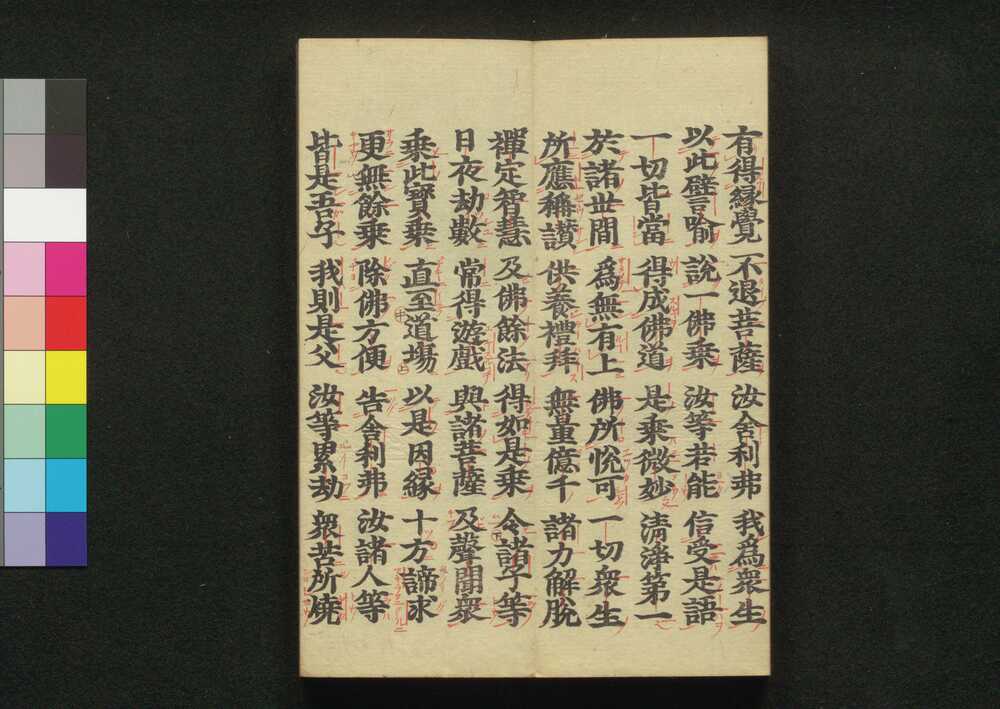 有得縁覺 不退菩薩 汝舍利弗 我爲衆生
以此譬喻 說一佛乘 汝等若能 信受是語
一切皆當 得成佛道 是乘微妙 清淨第一
於諸世間 爲無有上 佛所悅可 一切衆生
所應稱讃 供養禮拜 無量億千 諸力解脫
禪定智慧 及佛餘法 得如是乘 令諸子等
日夜劫數 常得遊戲 與諸菩薩 及聲聞衆
乘此寶乘 直至道場 以是因縁 十方諦求
更無餘乘 除佛方便 告舍利弗 汝諸人等
皆是吾子 我則是父 汝等累劫 衆苦所燒